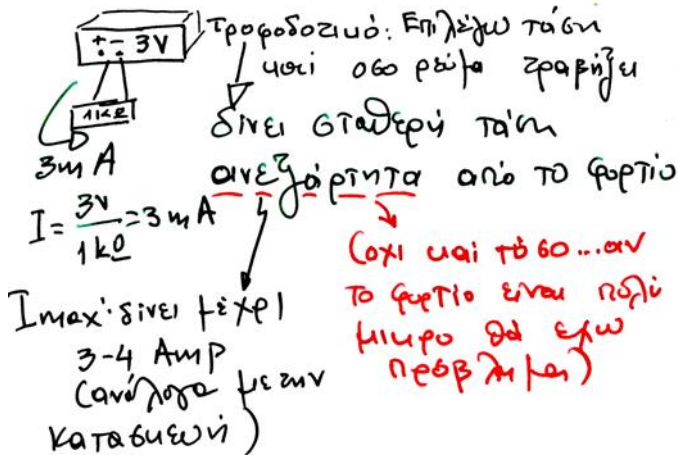 + - 3V
1kΩ
3mA
I = 3V / 1kΩ = 3mA
Τροφοδοτικό: Επιλέγω τάση
και οσο ρεύμα τραβήξει
δίνει σταθερή τάση
ανεξάρτητα από το φορτίο
(οχι και τόσο...αν
το φορτίο είναι πολύ
μικρο θα εχω
πρόβλημα)
Imax: δίνει μέχρι
3-4 Amp
(ανάλογα με την
κατασκευή)